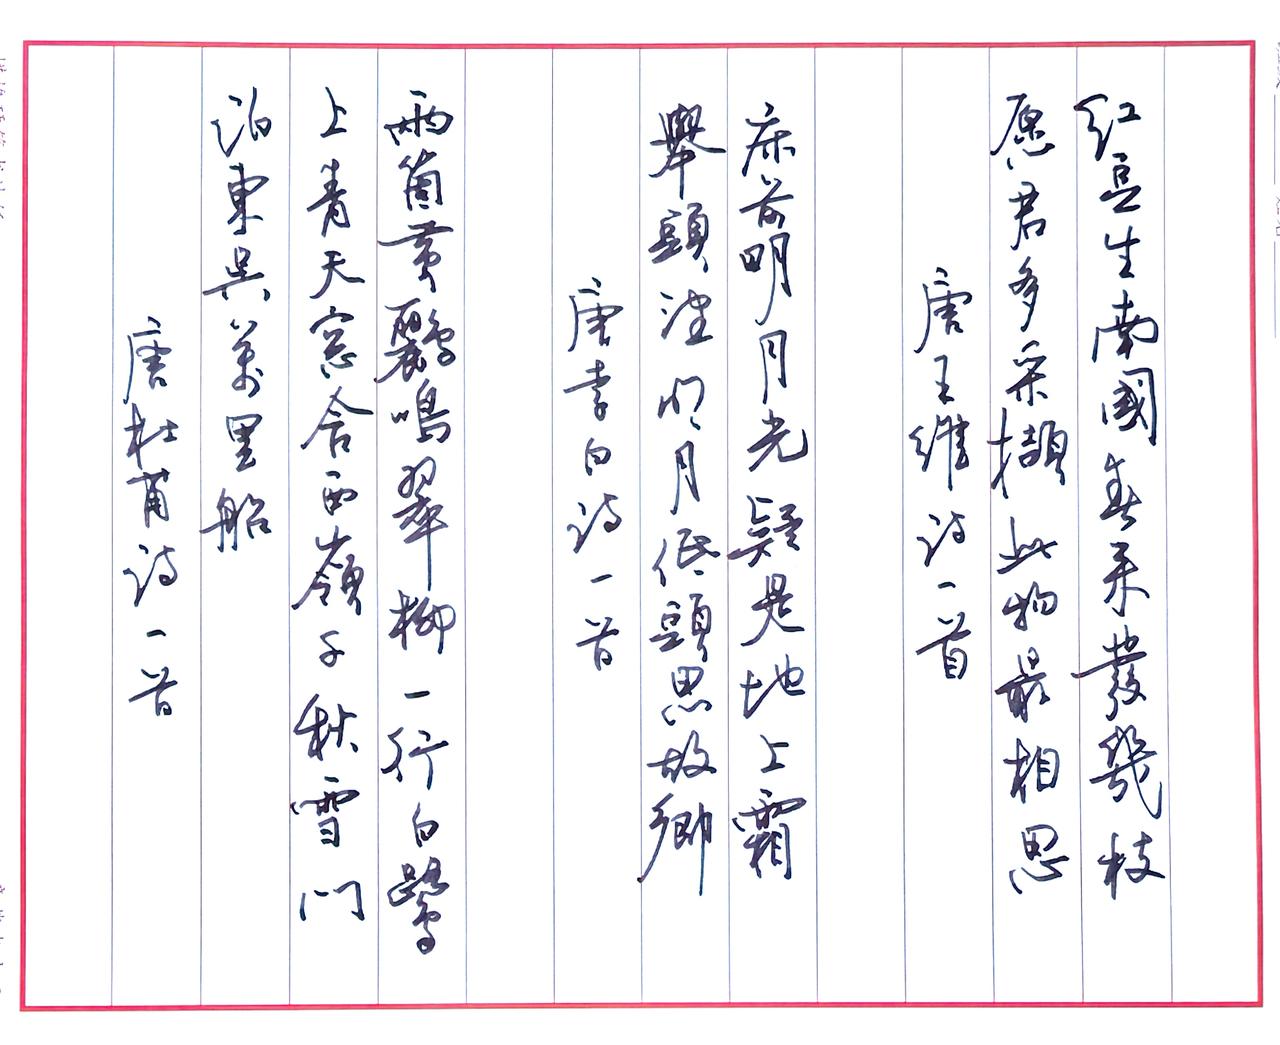 紅豆生南國春来發幾枝
愿君多采擷此物最相思
唐王維诗一首
床前明月光疑是地上霜
舉頭望明月低頭思故鄉
唐李白诗一首
兩箇黄鸝鳴翠柳一行白鷺
上青天窓含西嶺千秋雪门
泊東吳萬里船
唐杜甫诗一首